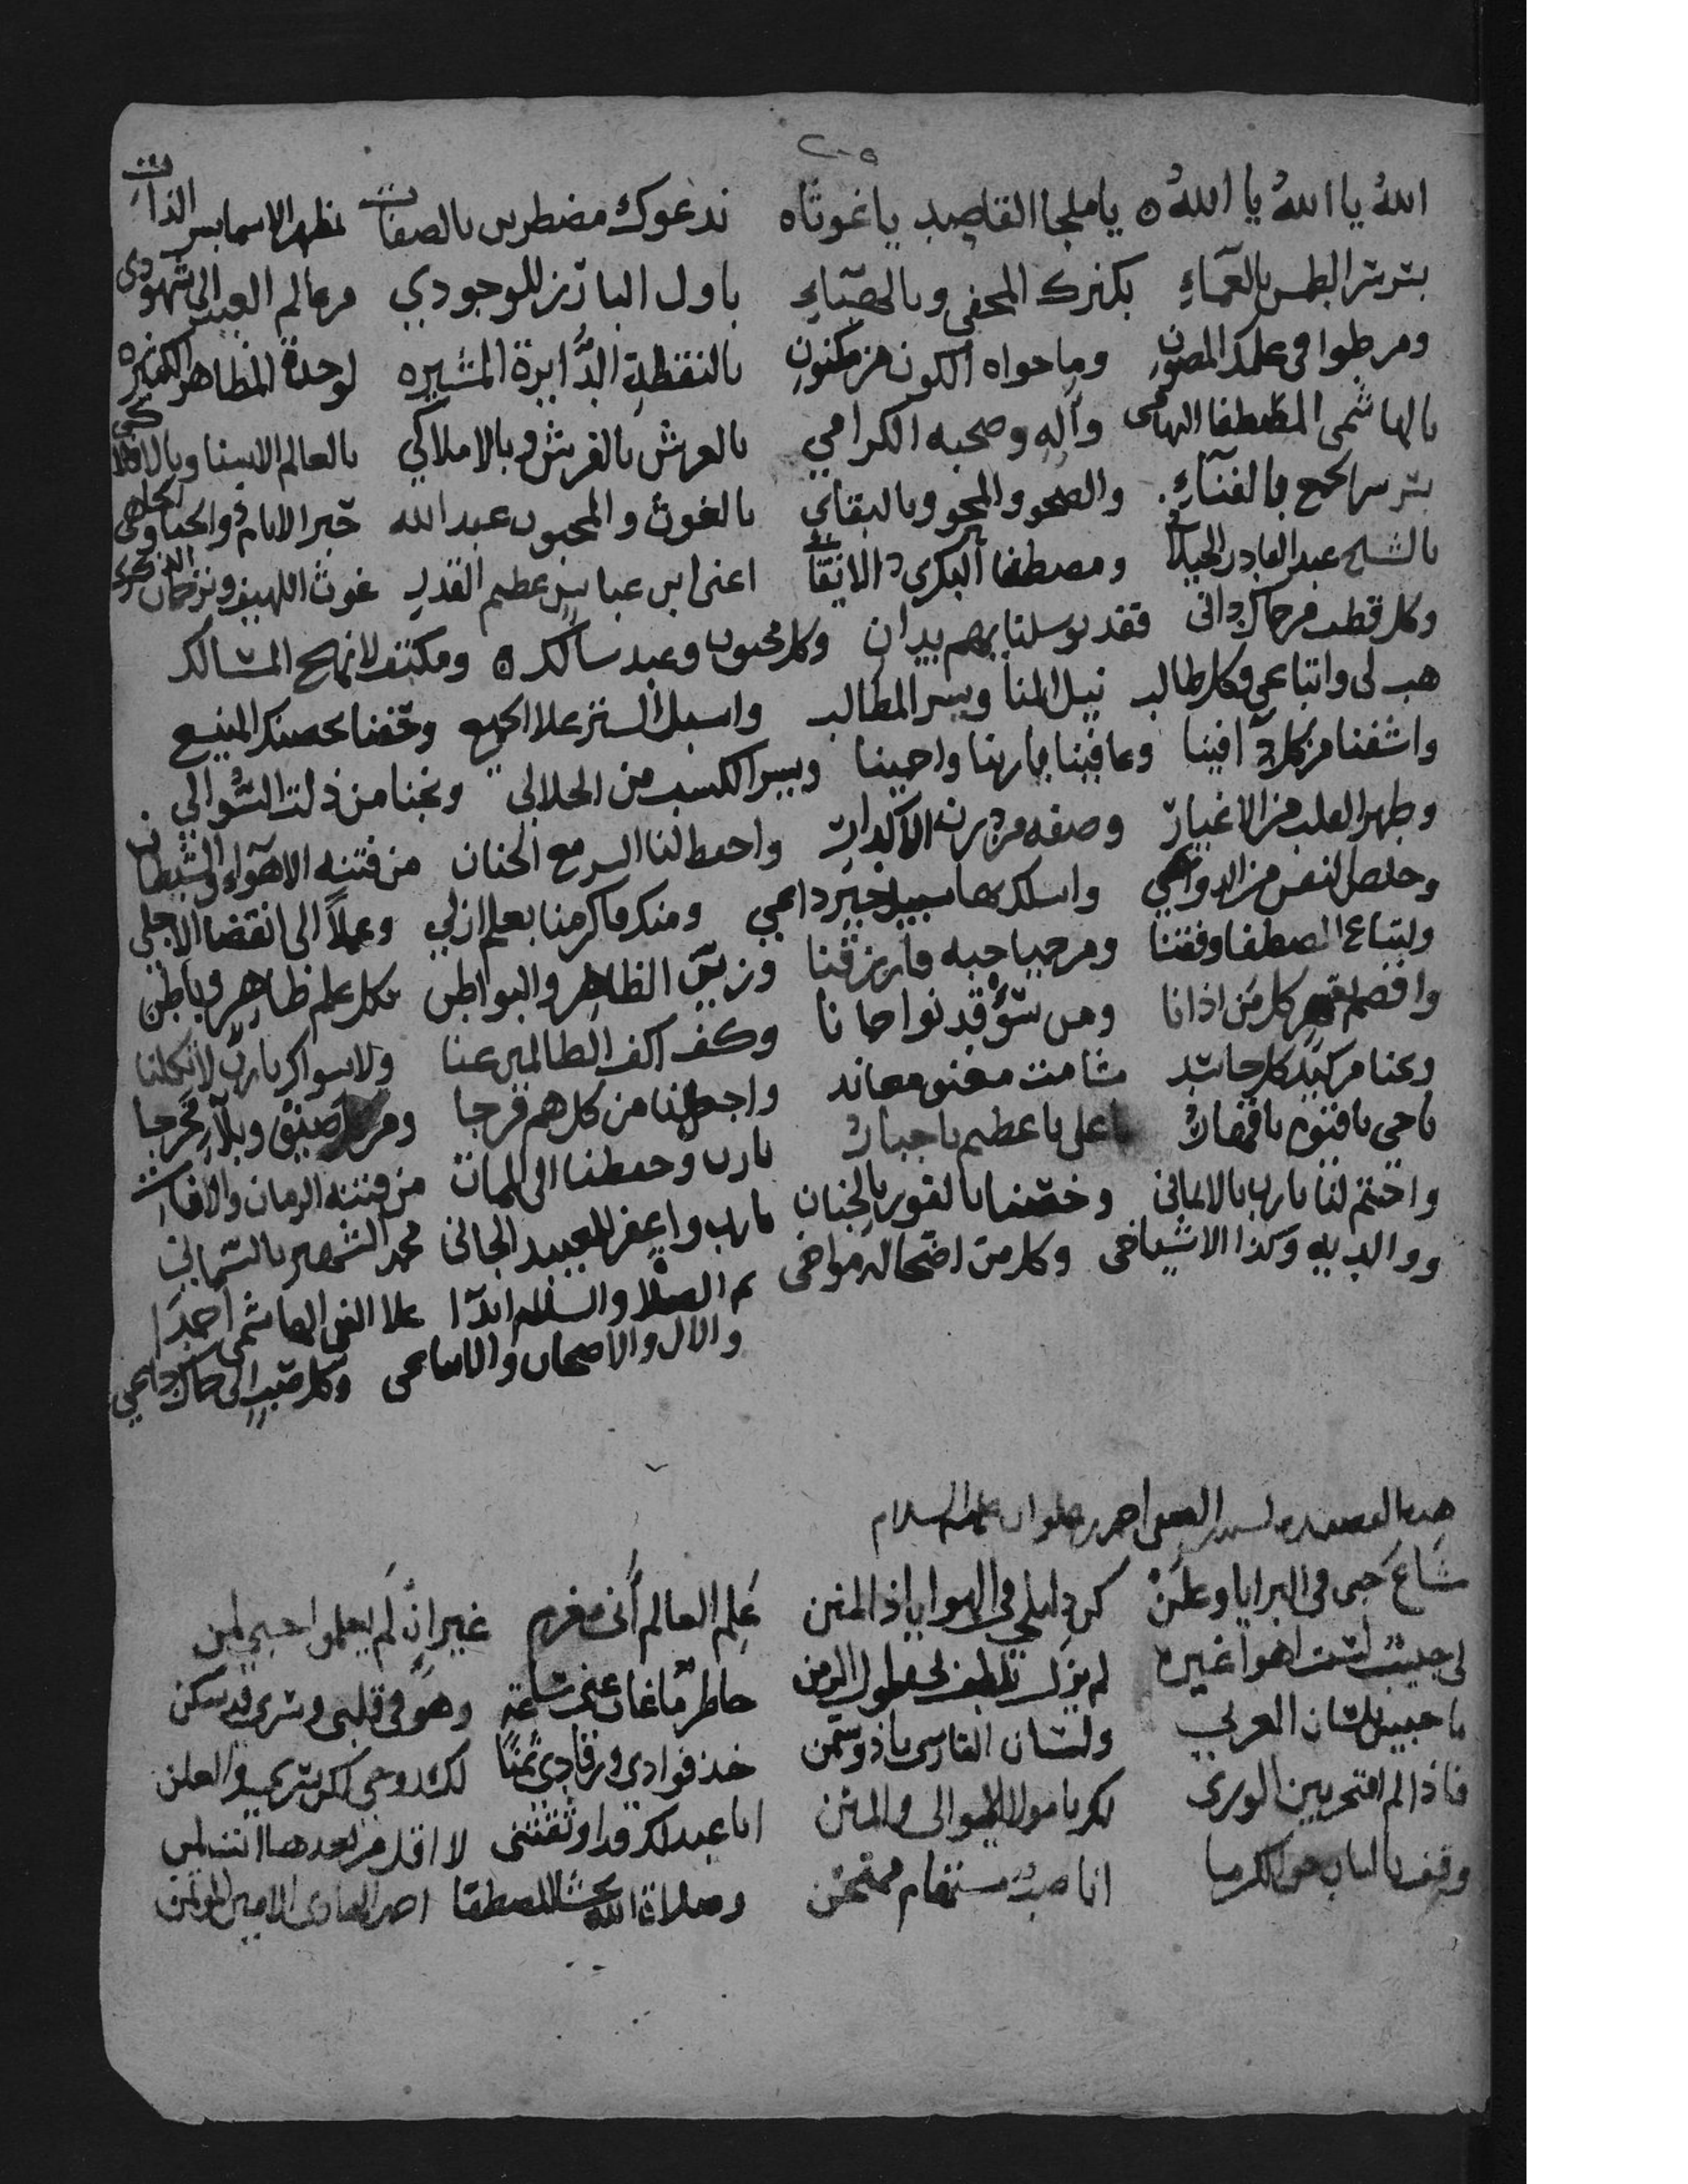 ٢٠٥
الله يا الله يا الله يا ملجا القاصد يا غوثاه ندعوك مضطرين بالصفات بمظهر الاسما بسر الذات
بسر سر الطمس بالعماء بكنزك المخفي وبالهباء باول البارز للوجودي من عالم الغيب الى الشهودي
ومن طوا في علمك المصون وما حواه الكون من مكنون بالنقطة الدايرة المشيره لوحدة المظاهر الكثيره
بالهاشمي المصطفا التهامي واله وصحبه الكرامي بالعرش بالفرش وبالاملاكي بالعالم الاسنا وبالافلاكي
بسر سر الجمع بالفناء والصحو والمحو وبالبقاي بالغوث والمحبوب عبد الله حبر الانام
بالشيخ عبد القادر الجيلا ومصطفا البكري الاتقا اعني ابن عباس عظيم القدر غوث اللهيف
وكل قطب من حماك داني فقد توسلنا بهم وكل محبوب وعبد سالك ومكتف لانهج المسالك
هب لي واتباعي وكل طالب نيل المنا ويسر المطالب واسبل الستر علا الجميع وحفنا بحصنك المنيع
واشفنا من كل د افينا وعافينا يا ربنا واحينا ويسر الكسب من الحلالي ونجنا من ذلت السوالي
وطهر القلب من الاغيار وصفه من درن الاكدار واحفظ لنا السر مع الجنان من فتنه الاهواء والشيطان
وخلص النفس من الدواهي واسلك بها سبيل خير داعي ومنك فاكرمنا بعلم ازلي وعملا الى انقضا الاجلي
ولاتباع المصطفا وفقنا ومن حميا حبه فارزقنا وزين الظاهر والبواطن بكل علم ظاهر وباطن
واقصم بقهر كل من اذانا ومن بسوء قد نوا حمانا وكف اكف الظالمين عنا ولا سواك يا رب لا تكلنا
ونجنا من كيد كل حاسد شامت معاند واجعل لنا من كل هم فرجا ومن كل ضيق وبلاء مخرجا
يا حي يا قيوم يا قهار يا علي يا عظيم يا جبار يا رب واحفظنا الى الممات من فتنه الزمان والافات
واختم لنا يا رب بالايماني وخصنا بالفوز بالجنان يا رب واغفر للعبيد الجاني محمد الشهير بالسماني
ووالديه وكذا الاشياخي وكل من اضحا له مواخي ثم الصلا والسلام ابدا علا النبي الهاشمي احمدا
والال والاصحاب والاتباعي وكل صب الى حماك داعي
هده القصيده لسيدي احمد بن علوان عليه السلام
شاع حبي في البرايا وعلن كن دليلي في الهوا يا ذا المنن علم العالم اني مغرم غير ان لم يعلموا حبي لمن
لي حبيب لست اهوا غيره لم يزل يلطف بي طول الزمن حاظر ما غاب عني ساعة وهو في قلبي وسري قد سكن
يا حبيبي بلسان العربي ولسان الفارسي يا ذوستمن خذ فوادي ورقادي ثمنا لك روحي لك سري والعلن
فاذا لم افتخر بين الورى بك يا مولا الموالي والمنن انا عبد لك قد اوثقتني لا اقل من بعد هذا
وقف بالباب حولك انا صب مستهام ممتحن وصلاة الله تغشا المصطفا احمد الهادي الامين الموتمن